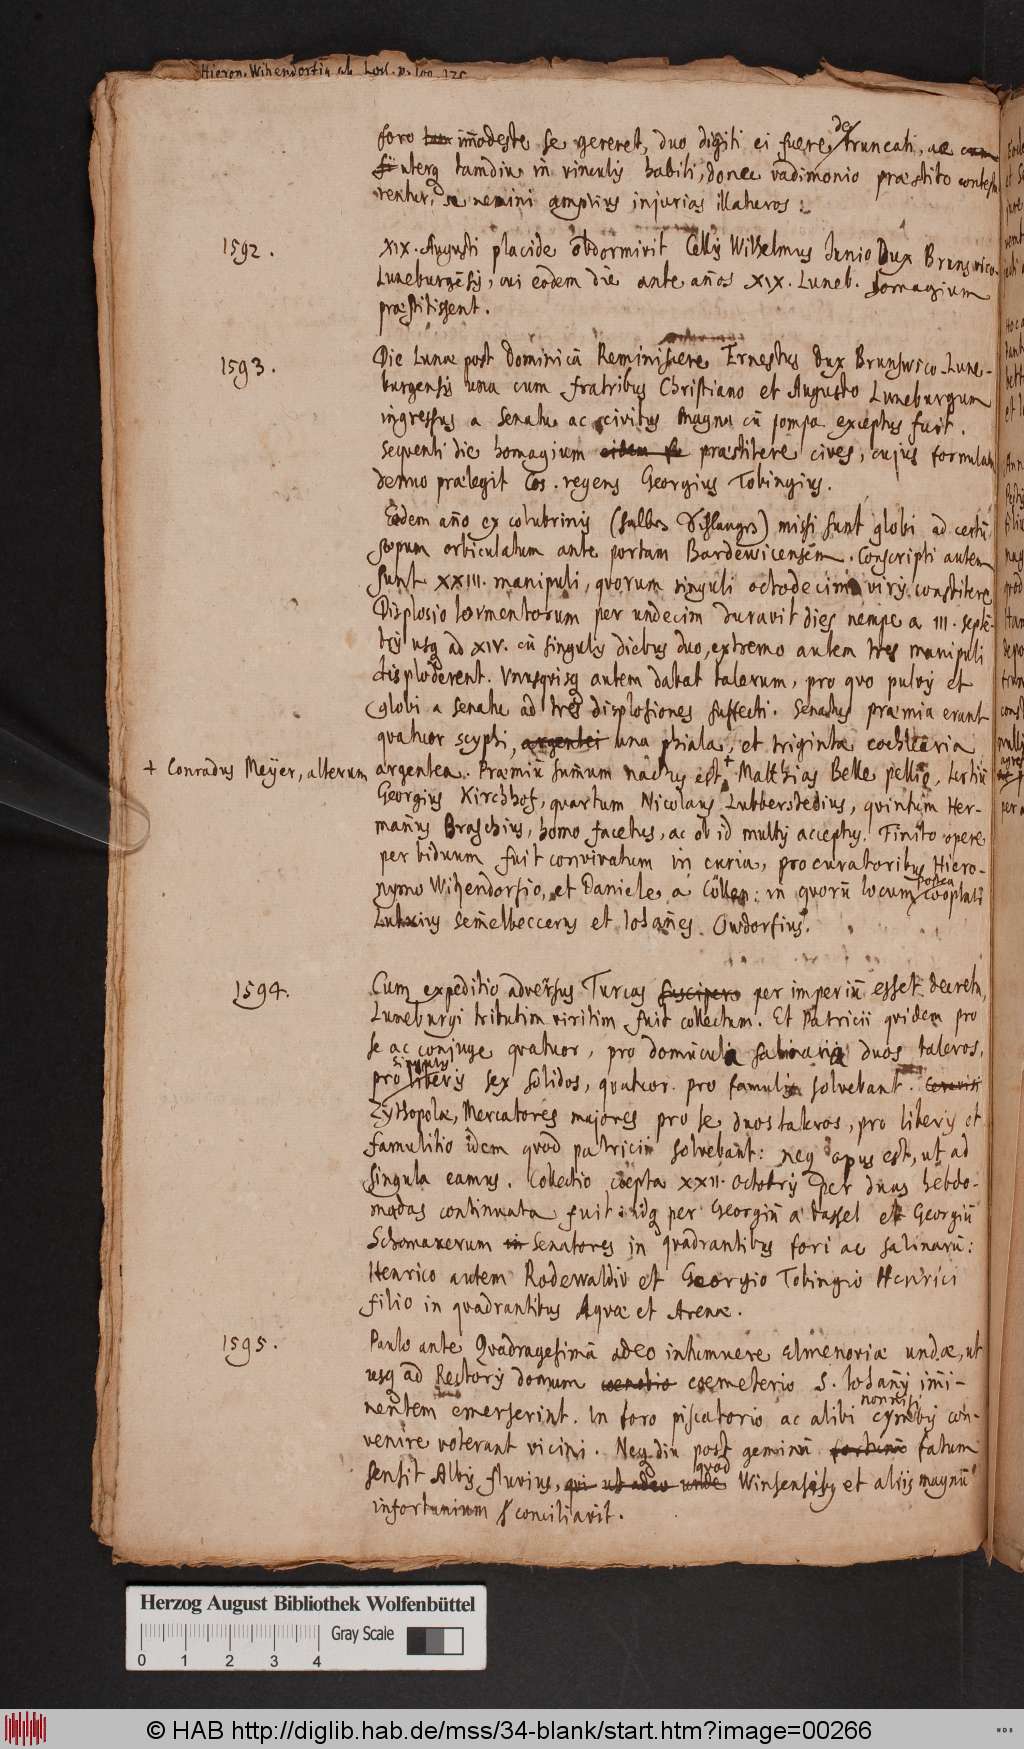 Hieron. Wihendorfiu
foro tam im̄odeste se gereret, duo digiti ei fuere de truncati, ac cum
uterq tamdiu in vinculis habiti, donec vadimonio præstito contesta
rentur, se nemini amplius injurias illaturos:
1592. XIX. Augusti placide obdormivit Cellis Wilhelmus Junio Dux Brunsvico-
Luneburgēsis, cui eodem die ante an̄os XIX. Luneb. homagium
præstitissent.
1593. Die Lunæ post dominicā Reminiscere Ernestus Dux Brunswico-Lune-
burgensis una cum fratribus Christiano et Augusto Luneburgum
ingressus a Senatu ac civitus magna cū pompa exceptus fuit.
Sequenti die homagium eidem præstitere cives, cujus formulam
denuo prælegit Cos. regens Georgius Tobingius.
Eodem an̄o ex colubrinis (halben Schlangen) missi sunt globi ad certū
scopum orbiculatum ante portam Bardewicensēm. Conscripti autem
sunt XXIII. manipuli, quorum singuli octodecim viris constitere
Displosio tormentorum per undecim duravit dies nempe a III. Septē-
bris usq ad XIV. cū singulis diebus duo, extremo autem tres manipuli
disploderent. Unusquisq autem dabat talerum, pro quo pulvis et
globi a senatu ad tres displosiones suffecti. Senatus præmia erant
quatuor scyphi, argentei una phiala, et triginta cochlearia
+ Conradus Meÿer, alterum
argentea. Præmiū sum̄um nactus est + Matthias Belle pellio, tertiū
Georgius Kirchhof, quartum Nicolaus Lubberstedius, quintum Her-
man̄us Braschius, homo facetus, ac ob id multis acceptus. Finito opere
per biduum fuit convivatum in curia, procuratoribus Hiero-
nymo Wihendorfio, et Daniele a Cöllen: in quorū locum postea cooptati
Lutkius Sem̄elbeccerus et Iohan̄es Owdorfius.
1594. Cum expeditio adversus Turcas suscipere per imperiū esset decreta,
Luneburgi tributim viritim fuit collectum. Et Patricii quidem pro
se ac conjuge quatuor, pro domūcula salinaria duos taleros,
pro singulis liberis sex solidos, quatuor pro famulis solvebant. Cerevisi
Zÿthopolæ, Mercatores majores pro se duos taleros, pro liberis et
famulitio idem quod patricii solvebant: neq opus est, ut ad
singula eamus. Collectio cœpta XXII. Octobris per duas hebdo-
madas continuata fuit: idq per Georgiū a Dassel et Georgiū
Schomakerum in Senatores in quadrantibus fori ac salinarū:
Henrico autem Rodewaldio et Georgio Tobingio Henrici
filio in quadrantibus Aquæ et Arenæ.
1595. Paulo ante Quadragesimā adeo intumuere Elmenoviæ undæ, ut
usq ad Rectoris domum coenobio coemeterio S. Iohan̄is im̄i-
nentem emerserint. In foro piscatorio ac alibi nonnisi cymbis con-
venire poterant vicini. Neq diu post geminū fortunū fatum
sensit Albis fluvius, qui ut adeo unde quod Winsensibus et aliis magnū
infortunium conciliavit.
Herzog August Bibliothek Wolfenbüttel
Gray Scale
0 1 2 3 4
© HAB http://diglib.hab.de/mss/34-blank/start.htm?image=00266